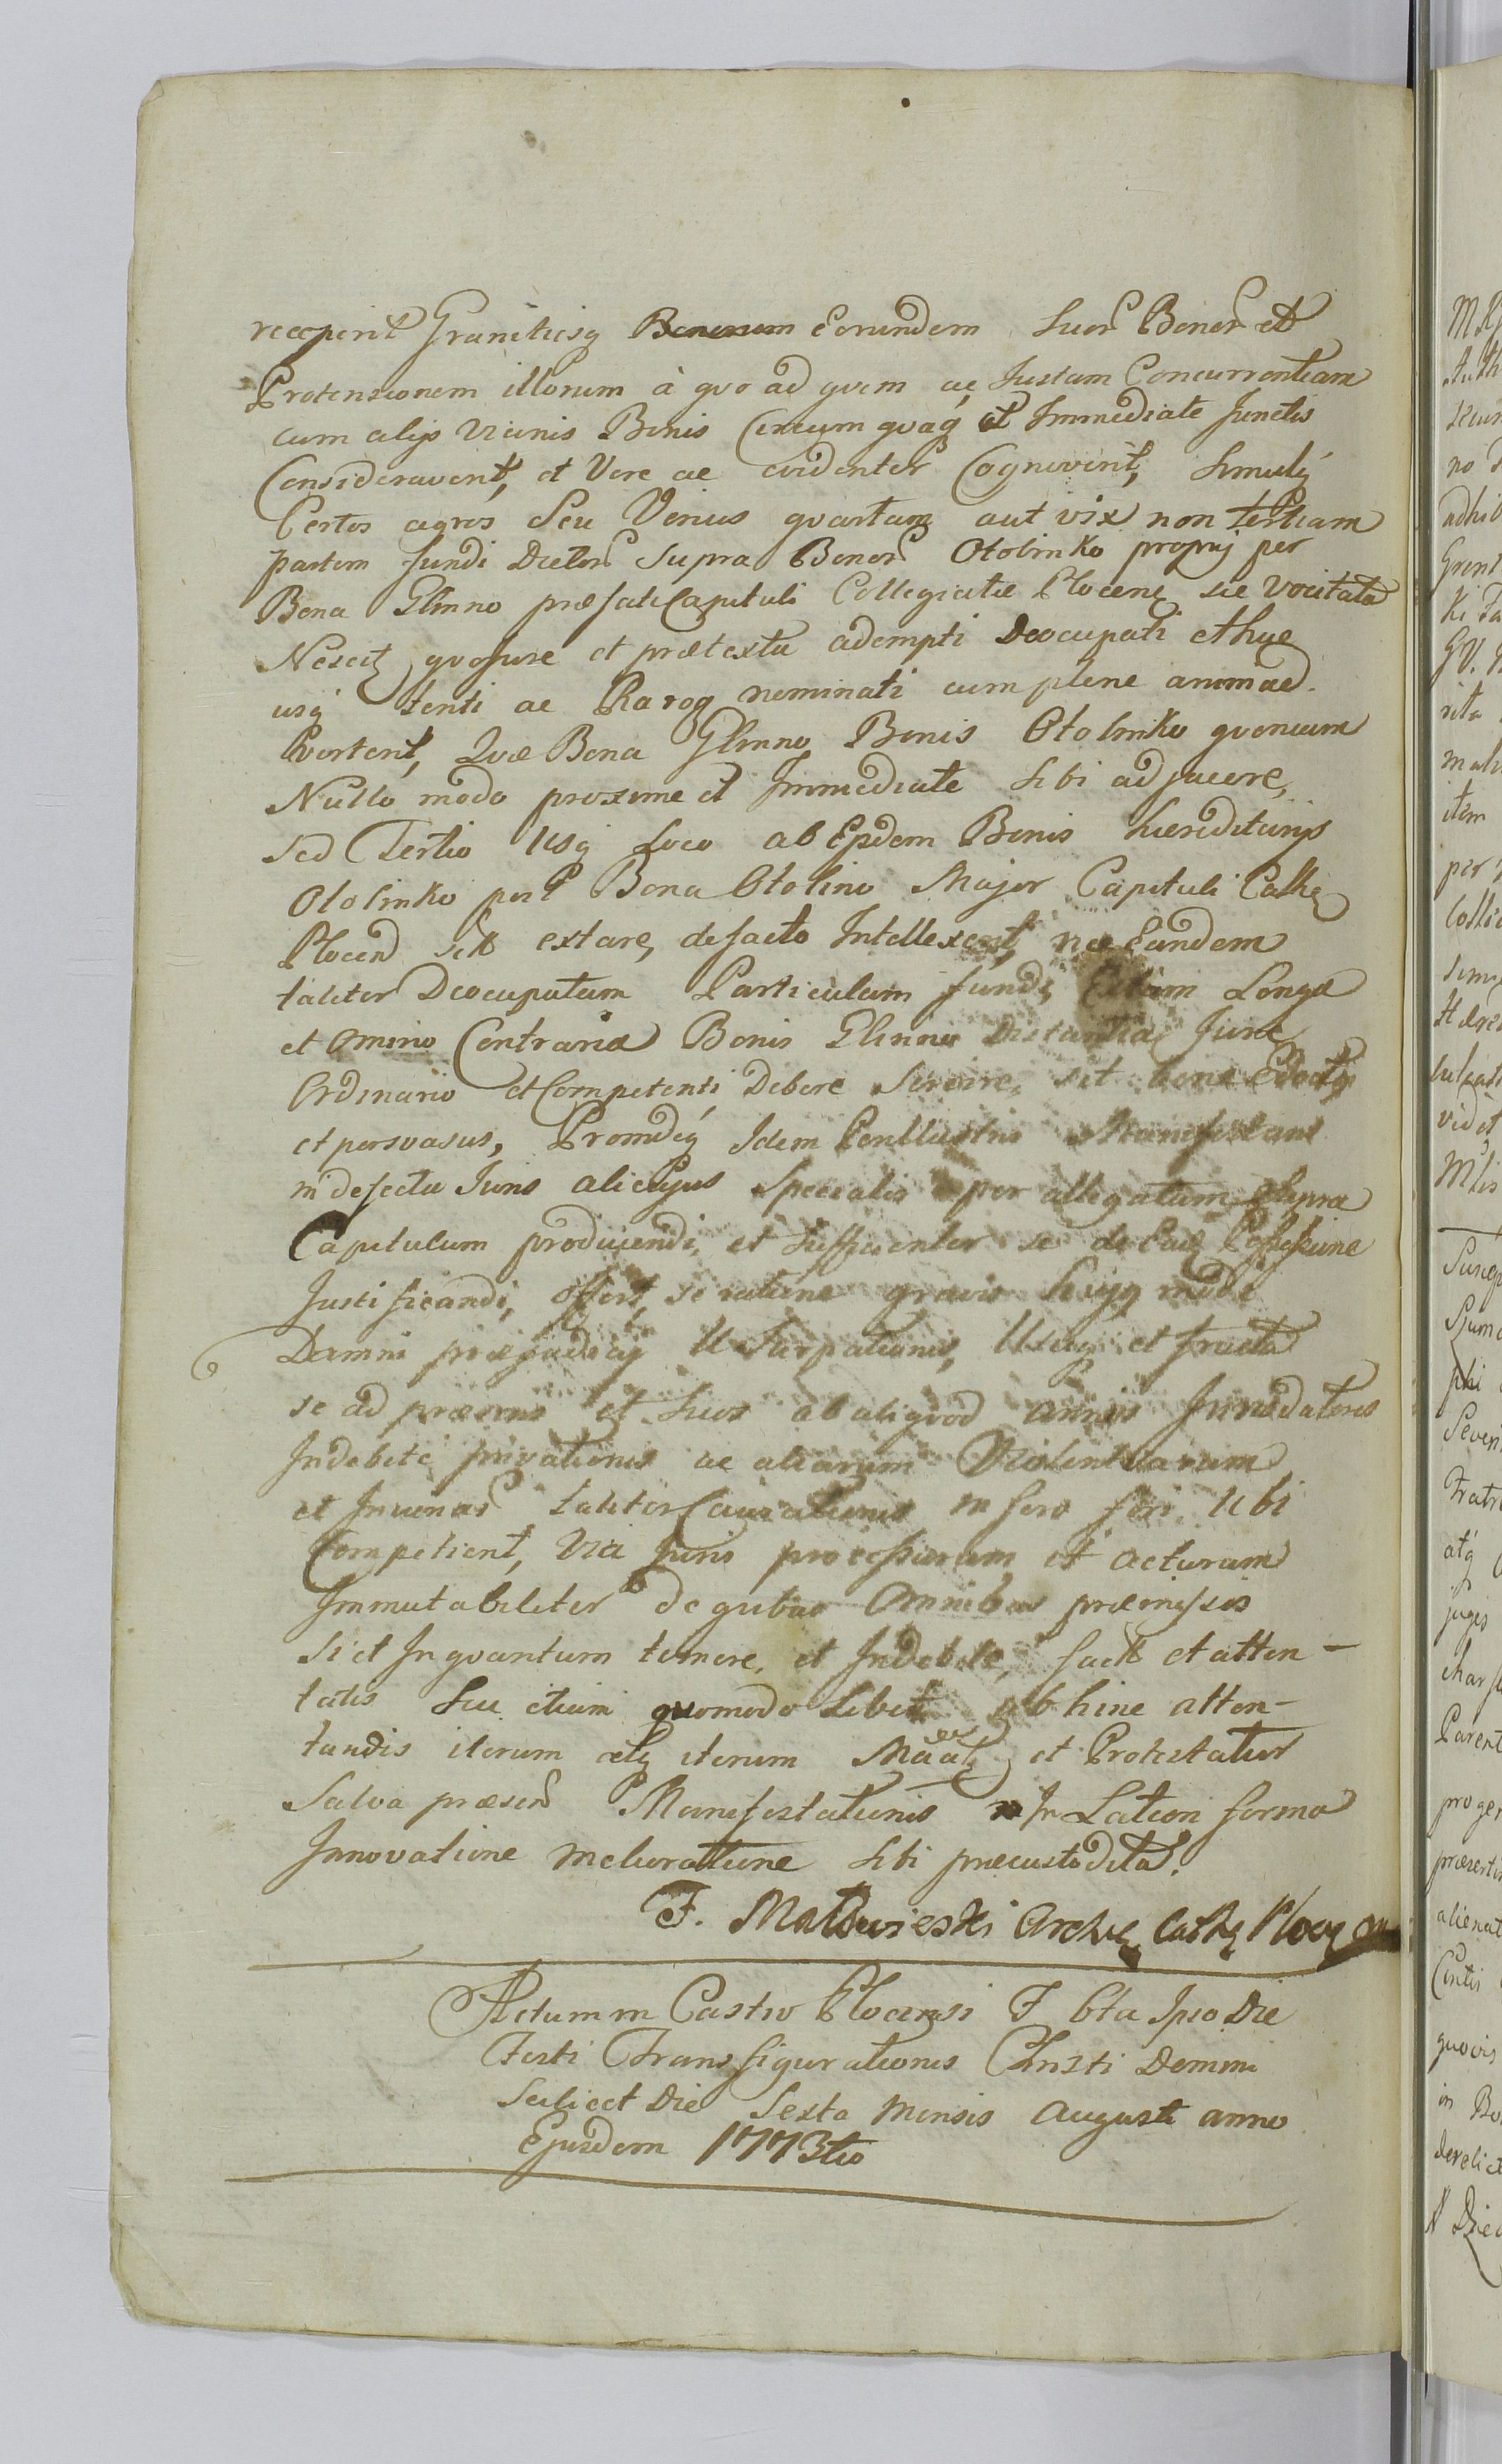 receperit Granitiesq Bonorum Eorundem Suor Bonor et
Protensionem illorum à quo ad quem ac Justam Concurrentiam
cum alys Vicinis Bonis Circum quaq et Immediate Junctis
Consideraverit, et Vere ac evidenter Cognoverit, Simulq
Certos agros Seu Verius quartam aut vix non tertiam
partem fundi Dictor Supra Bonor Otolinko propry per
Bona Glinno præfati Capituli Collegiatæ Plocen sic Vocitata
Nescit quo jure et prætextu adempti Deocupati et huc
usq tenti ac Rarog nominati cum plene animad-
verterit, Quæ Bona Glinno Bonis Otolinko quoniam
Nullo modo proxime et Immediate Sibi adjacere,
sed Tertio Usq Loco ab Eisdem Bonis hæreditarys
Otolinko post Bona Otolino Major Capituli Cathe
Plocen sitt extare, defacto Intellexerit, nec Eandem
taliter Deocupatam Particulam fundi Longa
et Omnino Contraria Bonis Glinno Distantia Jure
Ordinario et Competenti Debere Servire, sit bene Edoctus
et persvasus, Proindeq Idem Perillustris Manifestans
in defectu Juris alicujus Specialis per alligatum Supra
Capitulum producendi, et Sufficienter se de Possessione
Justificandi, offert se ratione gravis hujq modi
Damni præjudicy Usurpationis, Usuq et fructu
se ad præsens et Suos ab aliquod annis
Indebite privationis ac aliarum Violentiarum
et Injuriar taliter Causationis in foro fori Ubi
Competierit, Via Juris processurum et acturum
Immutabiliter de quibus Omnibus præmissis
Si et Inquantum temere, et Indebite, fact et atten-
tatis Seu etiam quomodo Libet abhinc atten-
tandis iterum atq iterum et Protestatur
Salva præsen Manifestationis In Latiori forma
Innovatione melioratione Sibi præcustodita.
F. Archi Cathe Ploce
Actum in Castro Plocensi F bta Ipso Die
Festi Transfigurationis Christi Domini
Scilicet Die Sexta Mensis Augusti anno
Ejusdem 1773tio